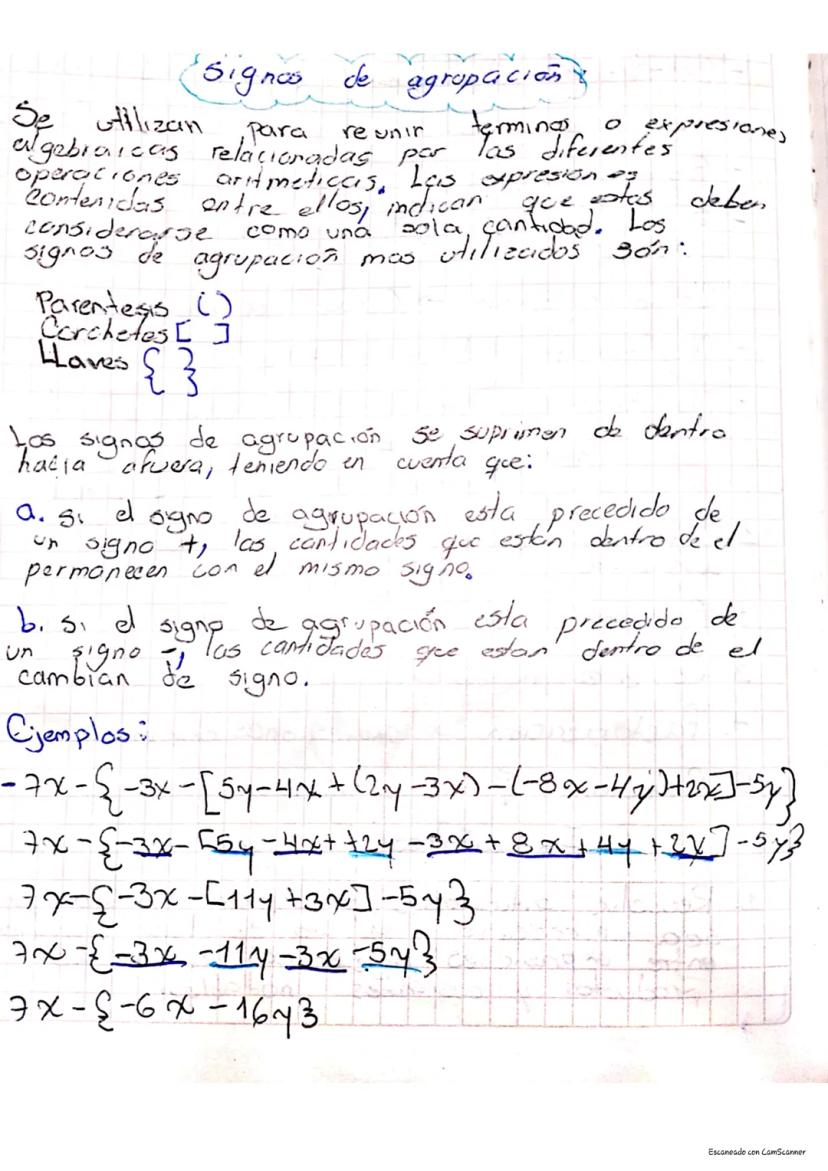 Signos de agrupación
Se utilizan para reunir terminos o expresiones
algebraicas relacionadas por las diferentes
operaciones aritmeticas. Las expresiones
contenidas entre ellos, indican que estas deben
considerarse como una sola cantidad. Los
signos de agrupación mas utilizados són:
Parentesis ( )
Corchetes [ ]
Llaves { }
Los signos de agrupación se suprimen de dentro
hacia afuera, teniendo en cuenta que:
a. si el signo de agrupación esta precedido de
un signo +, las cantidades que están dentro de el
permanecen con el mismo signo.
b. si el signo de agrupación esta precedido de
un signo -, las cantidades que estan dentro de el
cambian de signo.
Ejemplos:
- 7x - { -3x - [5y - 4x + (2y - 3x) - (-8x - 4y) + 2x] - 5y}
7x - {-3x - [5y - 4x + +2y - 3x + 8x + 4y + 2x] - 5y}
7x - {-3x - [11y + 3x] - 5y}
7x - {-3x - 11y - 3x - 5y}
7x - {-6x - 16y}
Escaneado con CamScanner